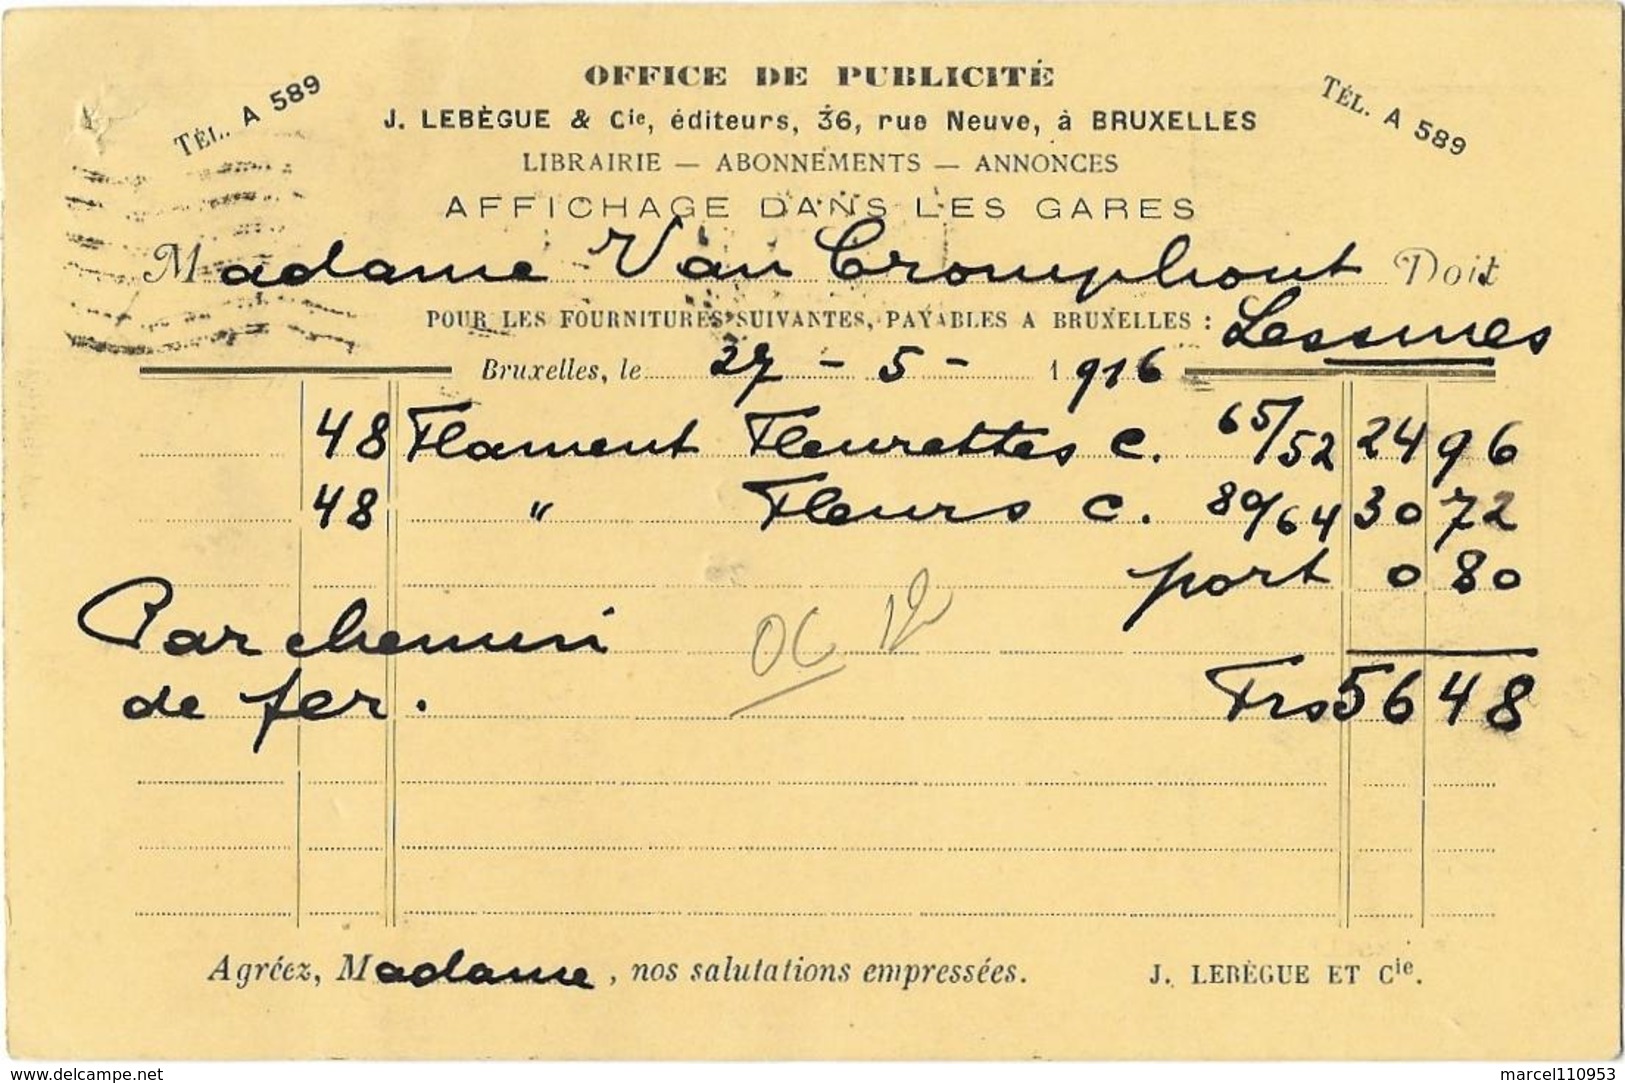 OFFICE DE PUBLICITÉ
TÉL. A 589
TÉL. A 589
J. LEBÈGUE & Cie, éditeurs, 36, rue Neuve, à BRUXELLES
LIBRAIRIE — ABONNEMENTS — ANNONCES
AFFICHAGE DANS LES GARES
Madame Van Cromphout Doit
POUR LES FOURNITURES SUIVANTES, PAYABLES A BRUXELLES : Lessines
Bruxelles, le 27 - 5 - 1916
48 Flament Fleurettes c. 65/52 24 96
48 " Fleurs c. 80/64 30 72
port 0 80
Par chemin
de fer. Frs 56 48
Agréez, Madame, nos salutations empressées. J. LEBÈGUE ET Cie.
delcampe.net
marcel110953